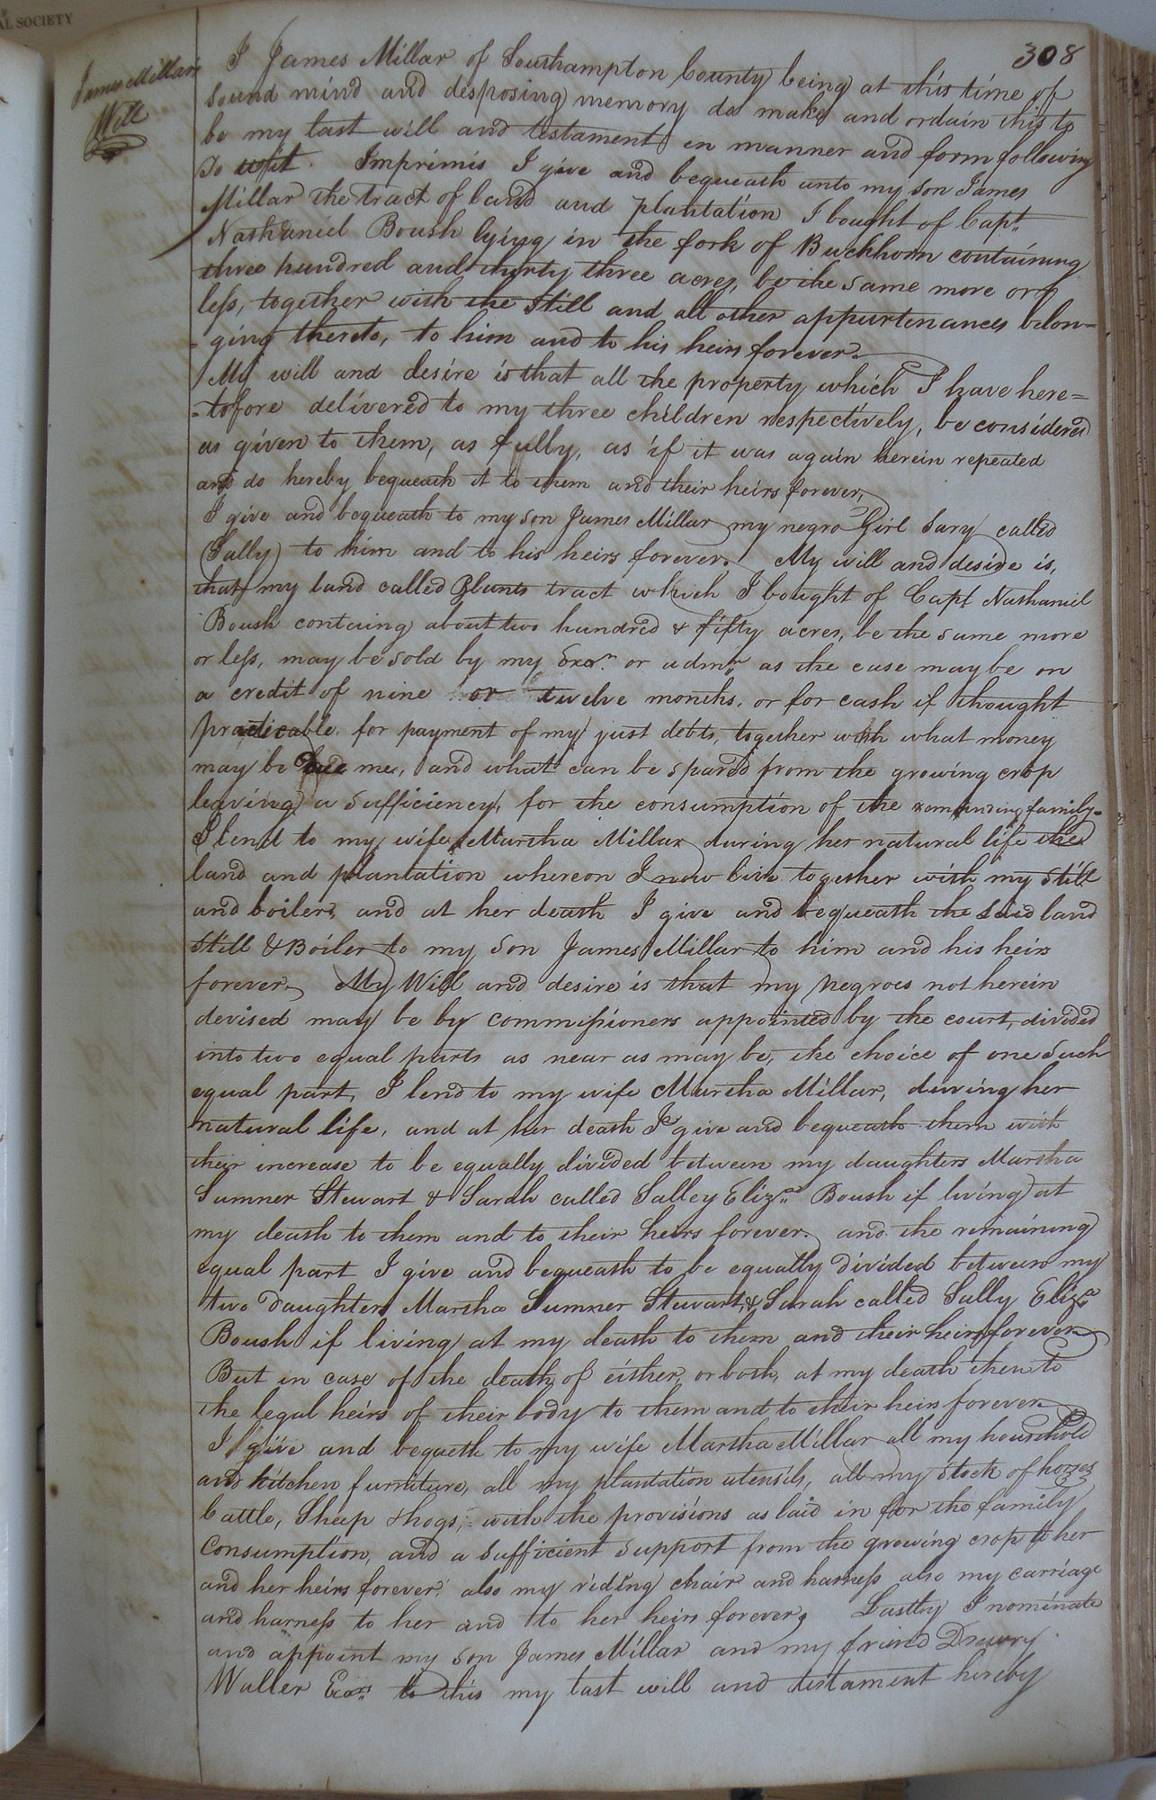 AL SOCIETY
308
James Millars
Will
I James Millar of Southampton County being at this time of
sound mind and desposing memory do make and ordain this to
be my last will and testament in manner and form following
To wit. Imprimis I give and bequeath unto my son James
Millar the tract of land and plantation I bought of Capt.
Nathaniel Boush lying in the fork of Buckhorn containing
three hundred and thirty three acres, be the same more or
less, together with the Still and all other appurtenances belon-
-ging thereto, to him and to his heirs forever.
My will and desire is that all the property which I have here=
-tofore delivered to my three children respectively, be considered
as given to them, as fully, as if it was again herein repeated
and do hereby bequeath it to them and their heirs forever,
I give and bequeath to my son James Millar my negro Girl Sary called
(Sally) to him and to his heirs forever. My will and deside is,
that my land called Blunts tract which I bought of Capt Nathaniel
Boush containg about two hundred & fifty acres, be the same more
or less, may be sold by my Exor. or admr. as the case may be on
a credit of nine or twelve months, or for cash if thought
practicable, for payment of my just debts, together with what money
may be due me, and what can be spared from the growing crop
leaving a sufficiency, for the consumption of the remainding family-
I lend to my wife Martha Millar during her natural life the
land and plantation whereon I now live together with my still
and boiler, and at her death I give and bequeath the said land
Still & Boiler to my son James Millar to him and his heirs
forever. My Will and desire is that my Negroes not herein
devised may be by commissioners appointed by the court, divided
into two equal parts as near as may be, the choice of one such
equal part, I lend to my wife Martha Millar, during her
natural life, and at her death I give and bequeath them with
their increase to be equally divided between my daughters Martha
Sumner Stewart & Sarah called Salley Eliza. Boush if living at
my death to them and to their heirs forever. and the remaining
equal part I give and bequeath to be equally divided between my
two Daughters Martha Sumner Stewart, & Sarah called Sally Eliza
Boush if living at my death to them and their heirs forever
But in case of the death of either, or both, at my death then to
the legal heirs of their body to them and to their heirs forever
I give and bequeth to my wife Martha Millar all my household
and kitchen furniture, all my plantation utensils, all my stock of horses
Cattle, Sheep & hogs, with the provisions as laid in for the family
Consumption, and a sufficient support from the growing crop to her
and her heirs forever, also my riding chair and harness also my carriage
and harness to her and to her heirs forever, Lastly I nominate
and appoint my son James Millar and my friend Drewry
Waller Exors. to this my last will and testament hereby